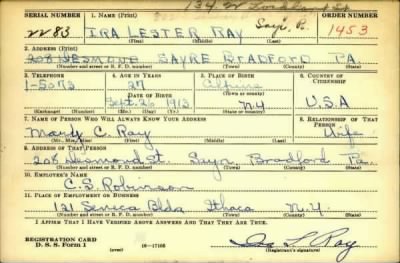 134 W Lockhart St
SERIAL NUMBER 1. NAME (Print) Sayre, Pa. ORDER NUMBER
2283 IRA LESTER RAY 1453
(First) (Middle) (Last)
2. ADDRESS (Print)
208 DESMOND SAYRE BRADFORD PA.
(Number and street or R. F. D. number) (Town) (County) (State)
3. TELEPHONE 4. AGE IN YEARS 5. PLACE OF BIRTH 6. COUNTRY OF CITIZENSHIP
1-5073 27 Alpine
DATE OF BIRTH (Town or county)
Sept. 26 1913 N.Y U.S.A
(Exchange) (Number) (Mo.) (Day) (Yr.) (State or country)
7. NAME OF PERSON WHO WILL ALWAYS KNOW YOUR ADDRESS 8. RELATIONSHIP OF THAT PERSON
Mary C. Ray Wife
(Mr., Mrs., Miss) (First) (Middle) (Last)
9. ADDRESS OF THAT PERSON
208 Desmond St. Sayre, Bradford Pa.
(Number and street or R. F. D. number) (Town) (County) (State)
10. EMPLOYER'S NAME
C.S. Robinson
11. PLACE OF EMPLOYMENT OR BUSINESS
121 Seneca Bldg Ithaca N.Y.
(Number and street or R. F. D. number) (Town) (County) (State)
I AFFIRM THAT I HAVE VERIFIED ABOVE ANSWERS AND THAT THEY ARE TRUE.
REGISTRATION CARD
D. S. S. Form 1 (over) 16-17105 Ira L Ray
(Registrant's signature)